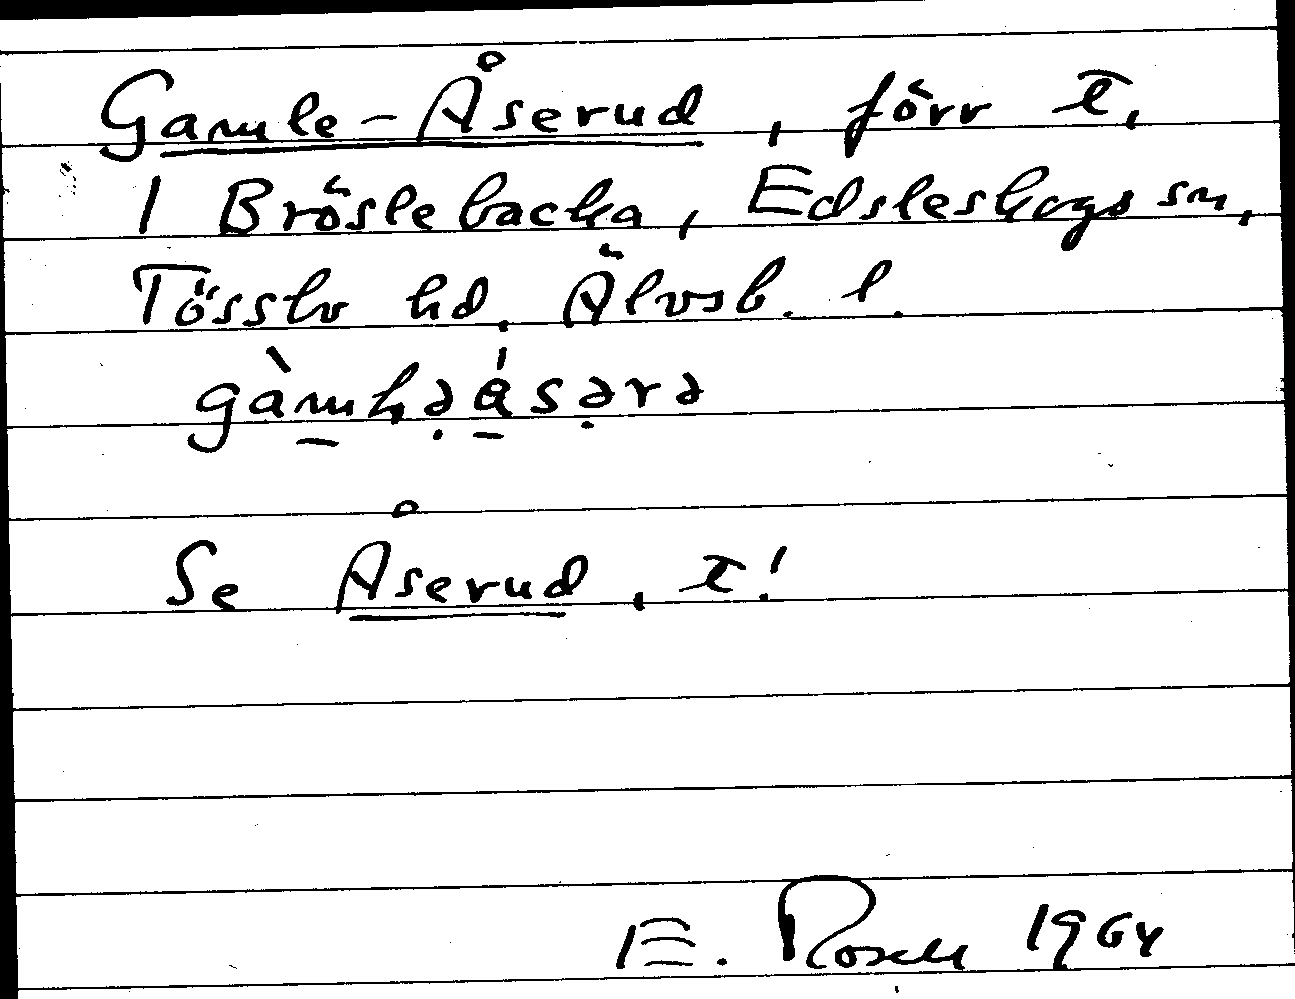 Gamle-Åserud, förr t.
1 Bröslebacka, Edsleskogs sn,
Tösslv hd. Älvsb. l.
Se Åserud, t!
E. Rosell 1964